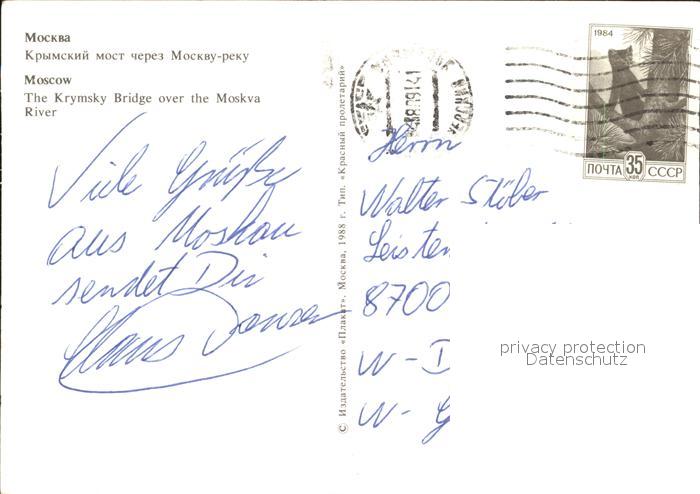 Москва
Крымский мост через Москву-реку
Moscow
The Krymsky Bridge over the Moskva
River
Viele Grüße
aus Moskau
sendet Dir
Claus
© Издательство «Плакат», Москва, 1988 г. Тип. «Красный пролетарий»
1984
ПОЧТА 35 КОП СССР
Herrn
Walter Stöber
Leisten
8700
W - D
W - G
privacy protection
Datenschutz